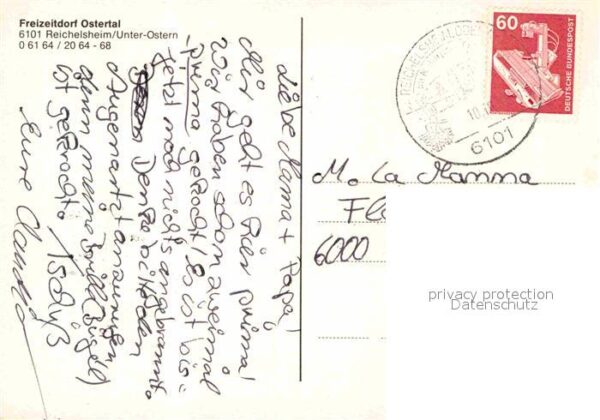 Freizeitdorf Ostertal
6101 Reichelsheim/Unter-Ostern
0 61 64 / 20 64 - 68
Liebe Mama + Papa!
Mir geht es hier prima!
Wir haben schon zweimal
prima gekocht! Es ist bis-
jetzt noch nichts angebrannt.
Denke bitte den
Augenarzt anzurufen
denn meine Brille (Bügel)
ist gekracht.
Tschüß
Eure Claudia
60
DEUTSCHE BUNDESPOST
REICHELSHEIM, ODENW
10.1
6101
M. La Mamma
Fl
6000
privacy protection
Datenschutz